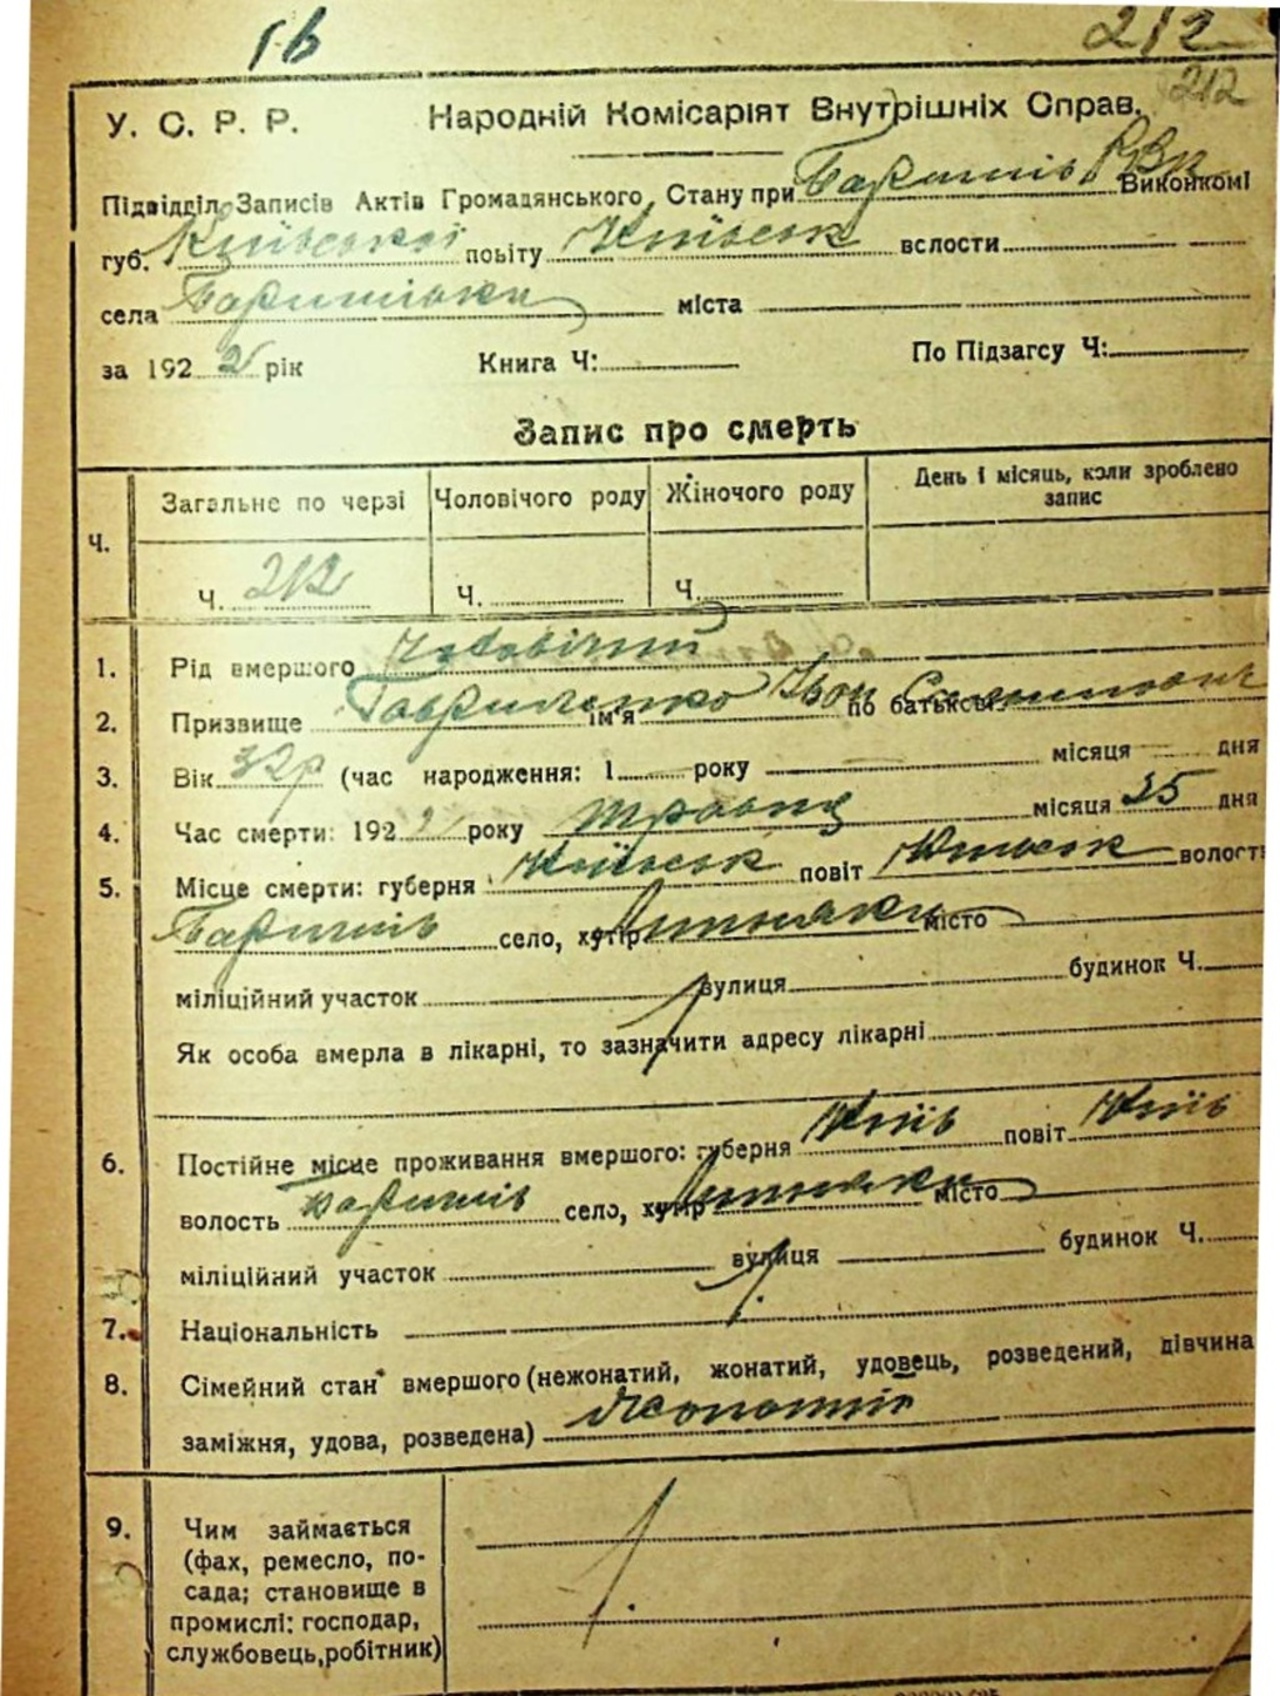 212
212
У. С. Р. Р. Народній Комісаріят Внутрішніх Справ.
Підвідділ Записів Актів Громадянського Стану при Баришів РВК Виконкомі
губ. Київської повіту Київськ вслости
села Баришівки міста
за 1922 рік Книга Ч: По Підзагсу Ч:
Запис про смерть
Ч. Загальне по черзі Чоловічого роду Жіночого роду День і місяць, коли зроблено запис
Ч. 212 Ч. Ч.
1. Рід вмершого Чоловічий
2. Призвище Гавриленко ім'я Іван по батькові
3. Вік 32р (час народження: 1 року місяця дня
4. Час смерти: 1922 року травня місяця 25 дня
5. Місце смерти: губерня Київськ повіт Київськ волость
Баришів село, хутір місто
міліційний участок вулиця будинок Ч.
Як особа вмерла в лікарні, то зазначити адресу лікарні
6. Постійне місце проживання вмершого: губерня Київ повіт Київ
волость Баришів село, хутір місто
міліційний участок вулиця будинок Ч.
7. Національність
8. Сімейний стан вмершого (нежонатий, жонатий, удовець, розведений, дівчина
заміжня, удова, розведена) Жонатий
9. Чим займається
(фах, ремесло, по-
сада; становище в
промислі: господар,
службовець, робітник)